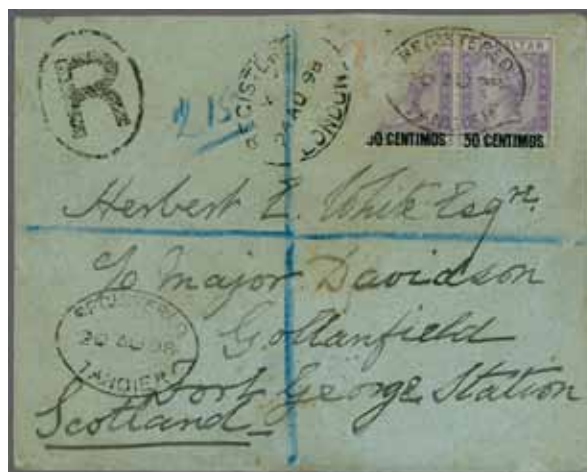 R
REGISTERED
24 AU 98
LONDON
REGISTERED
TANGIER
GIBRALTAR
50 CENTIMOS 50 CENTIMOS
Herbert E. White Esqre.
c/o Major Davidson
Gollanfield
Fort George Station
Scotland
REGISTERED
20 AU 98
TANGIER